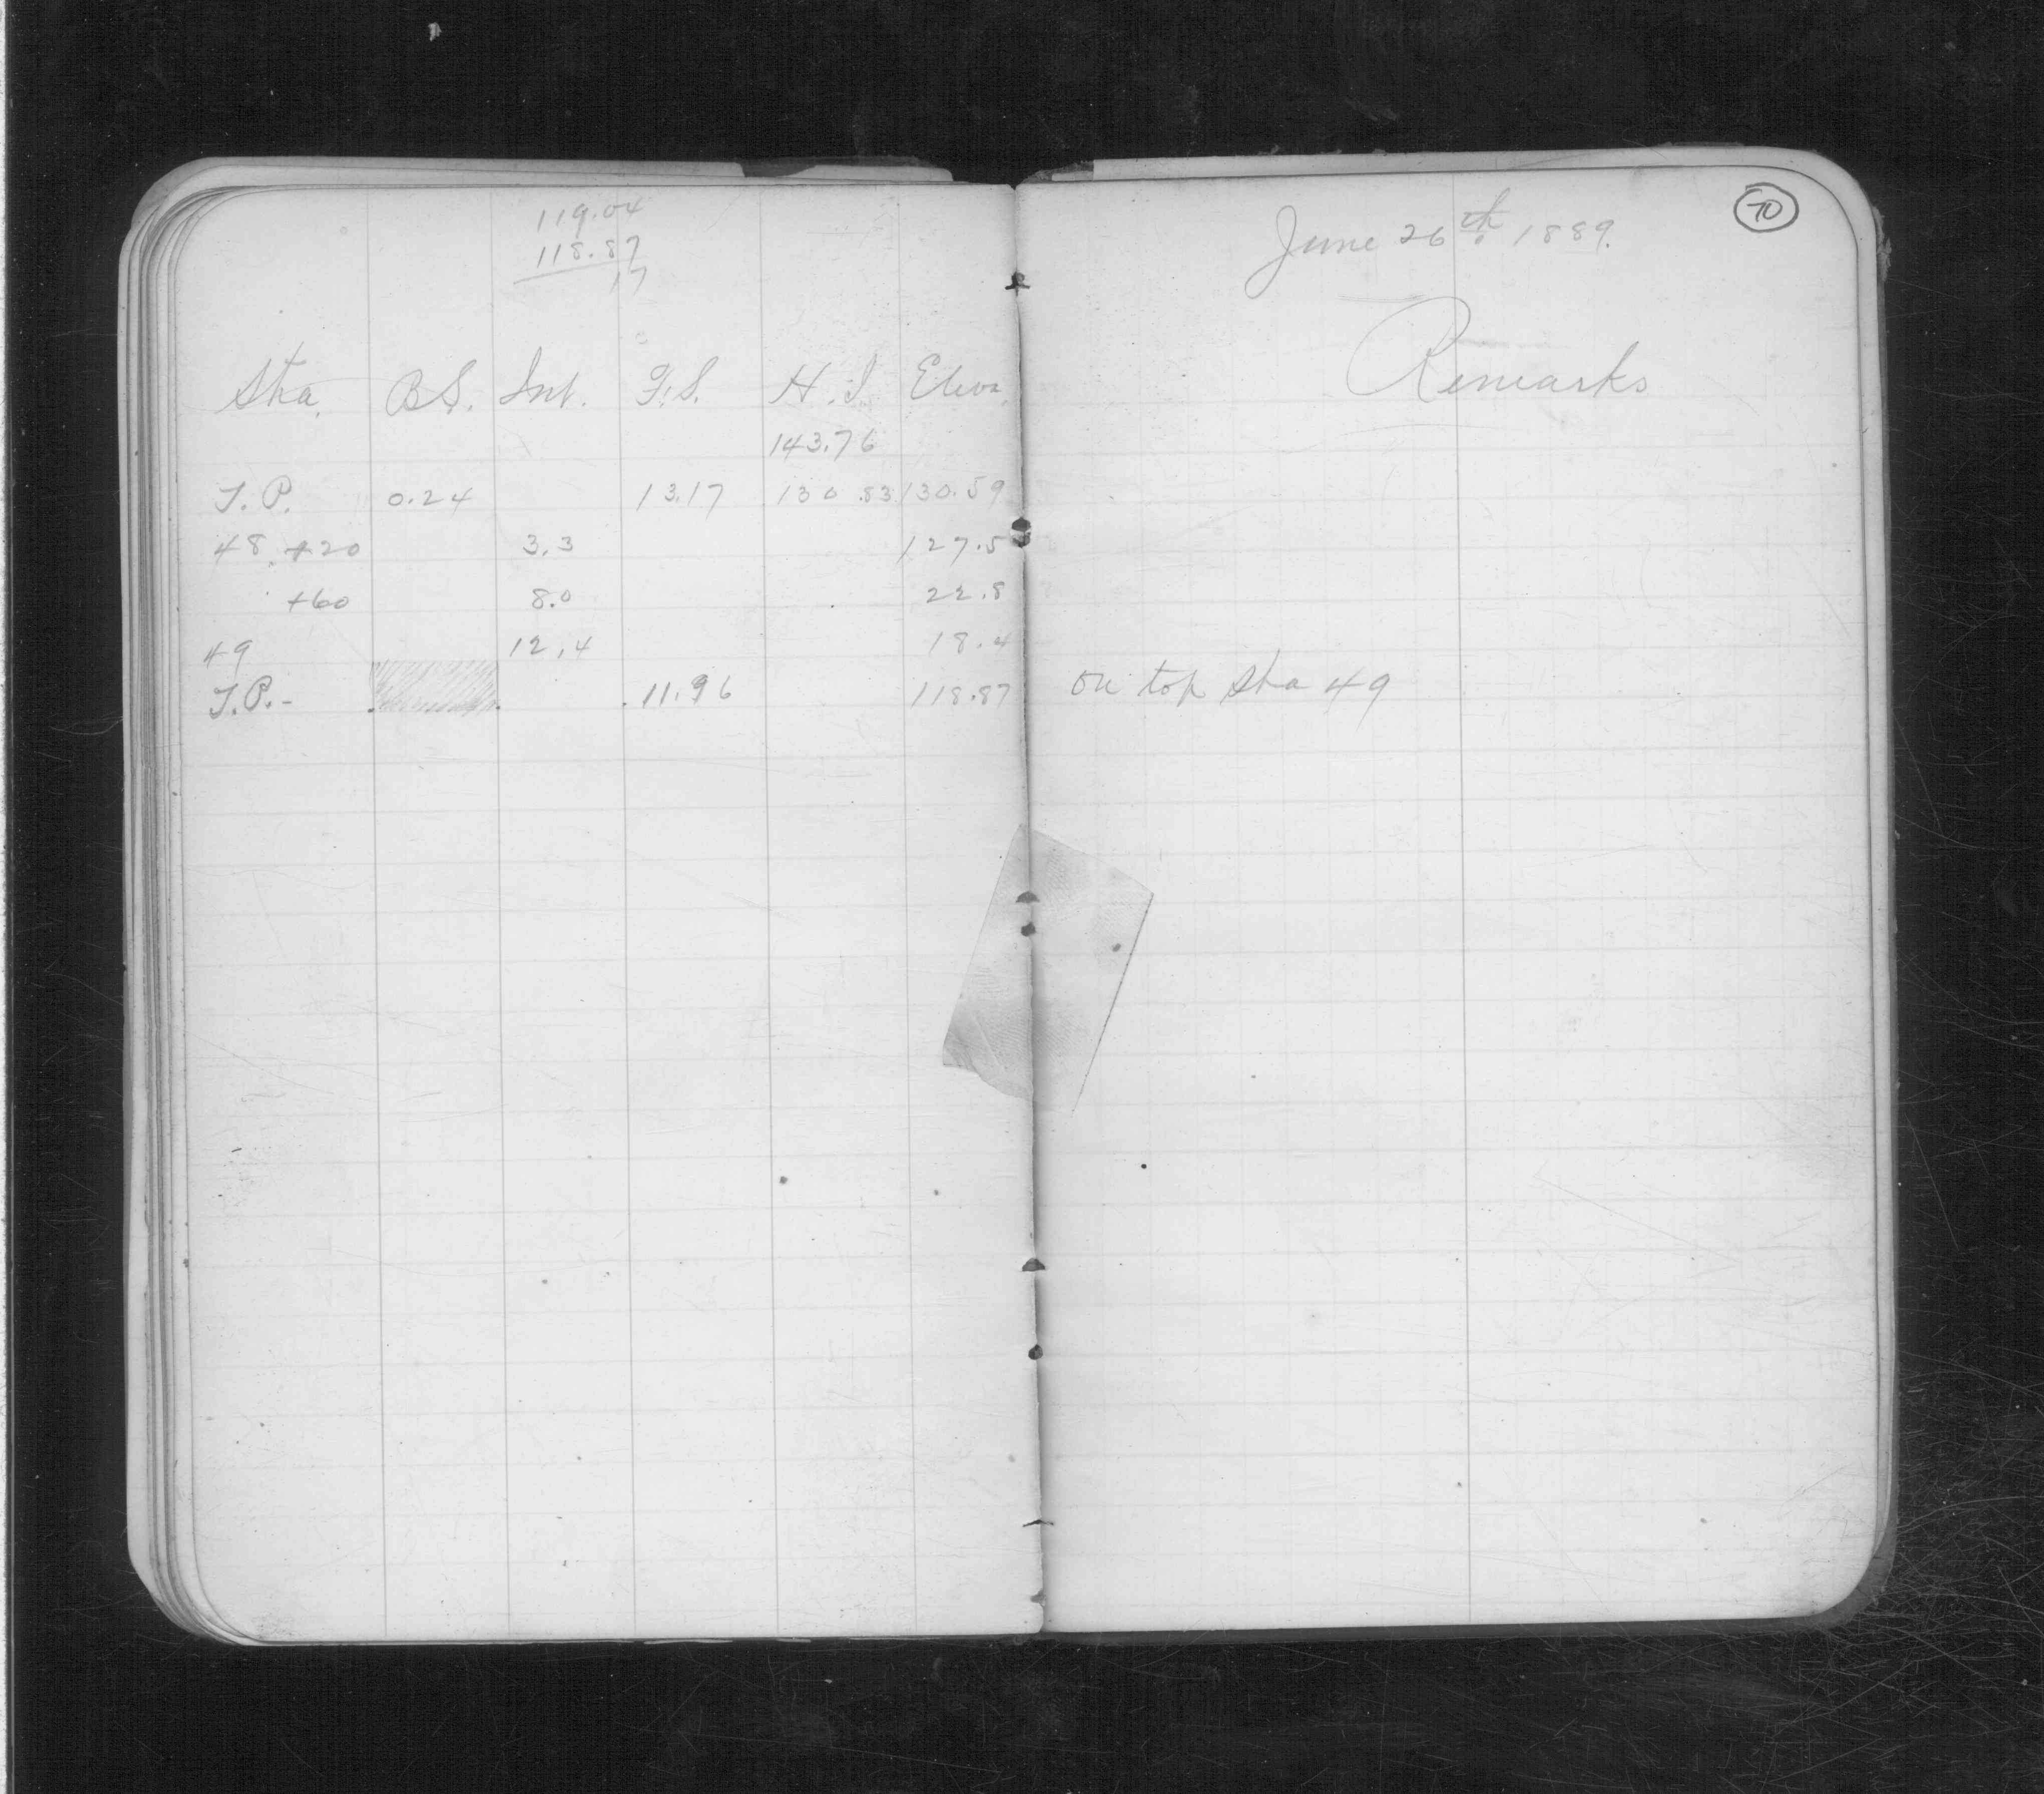 119.04
118.87
17
Sta. B.S. Int. F.S. H.I. Eleva.
143.76
T.P. 0.24 13.17 130.83 130.59
48 +20 3.3 127.5
+60 8.0 22.8
49 12.4 18.4
T.P.- 11.96 118.87
70
June 26th 1889.
Remarks
on top Sta 49